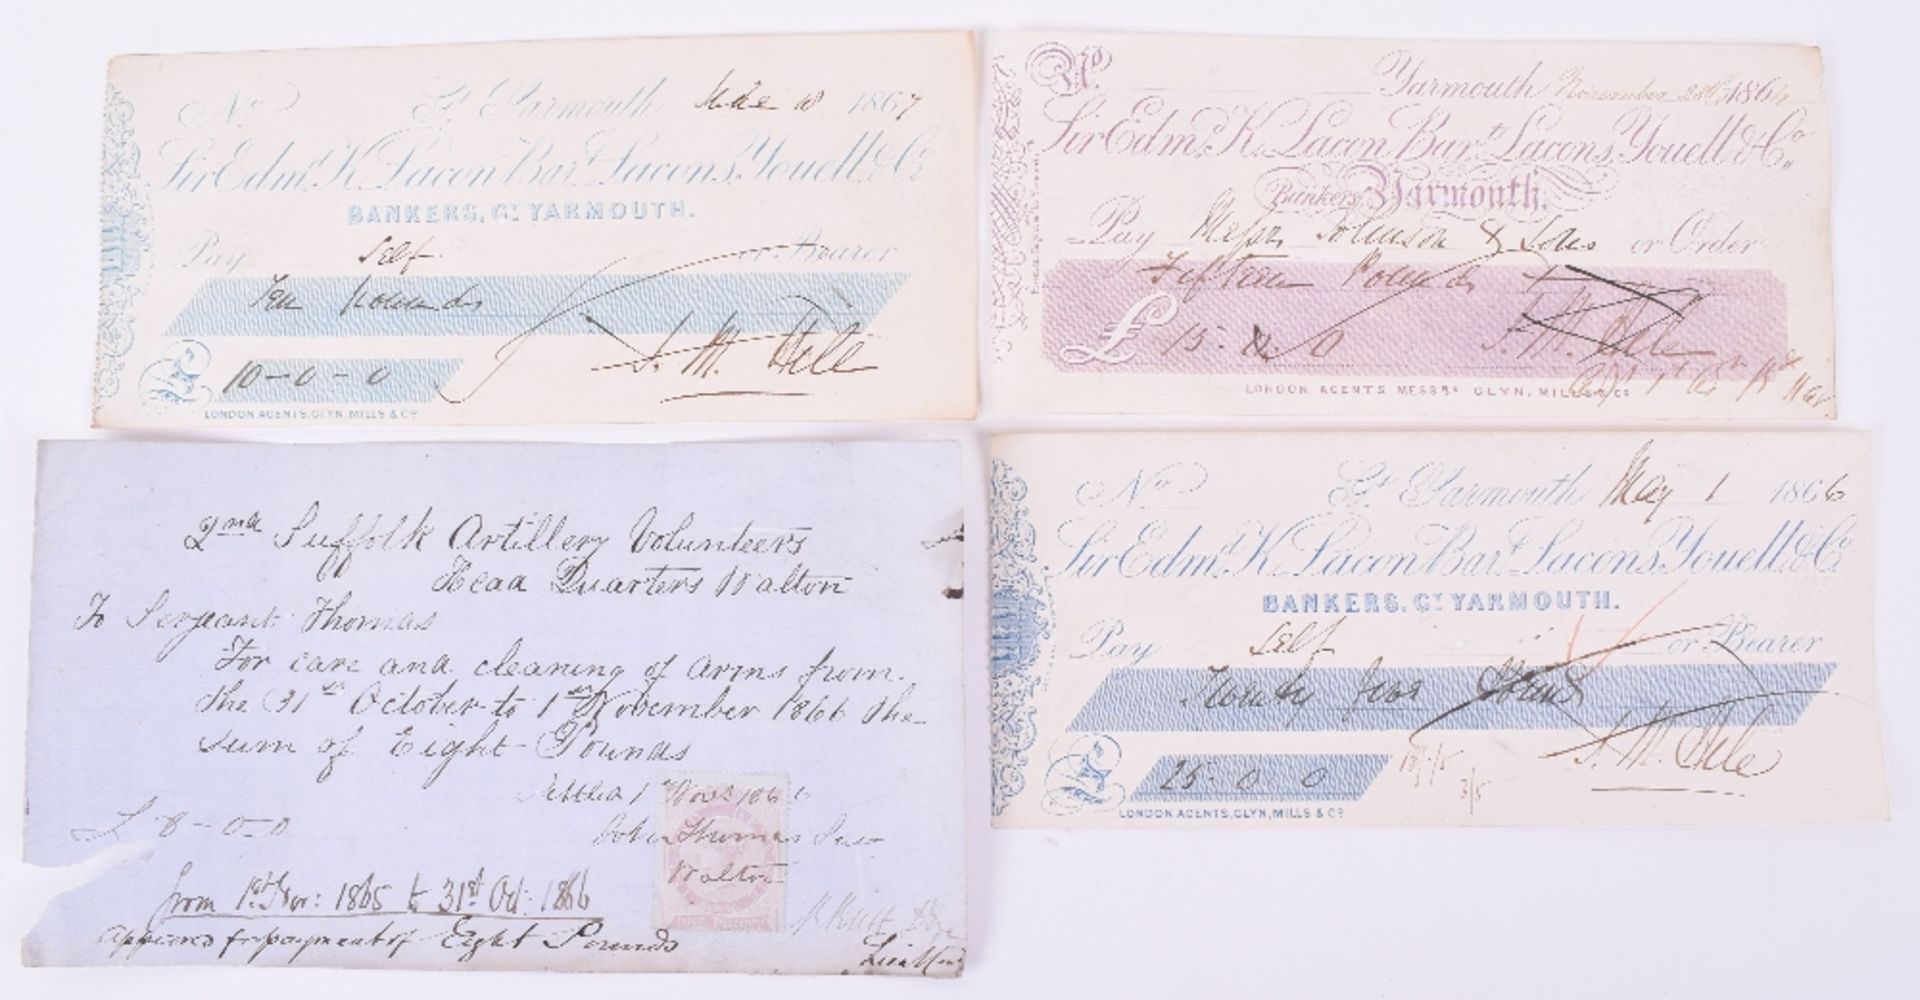 No Gt Yarmouth 18 1867
Sir Edmd K. Lacon Bart Lacons, Youell & Co
BANKERS, GT YARMOUTH.
Pay Self or Bearer
Ten Pounds
£ 10-0-0
LONDON AGENTS, GLYN, MILLS & CO
No Yarmouth November 28th 1866
Sir Edmd K. Lacon Bart Lacons, Youell & Co
Bankers Yarmouth.
Pay Messrs Johnson & Sons or Order
Fifteen Pounds
£ 15. 0. 0
LONDON AGENTS MESSRS GLYN, MILLS & CO
2nd Suffolk Artillery Volunteers
Head Quarters Walton
To Sergeant Thomas
For care and cleaning of arms from
the 31st October to 1st November 1866 the
sum of Eight Pounds
Settled 1 Novr 1866
£ 8-0-0
John Thomas
Walton
from 1st Nov: 1865 to 31st Oct: 1866
Approved for payment of Eight Pounds
No Gt Yarmouth May 1 1866
Sir Edmd K. Lacon Bart Lacons, Youell & Co
BANKERS, GT YARMOUTH.
Pay Self or Bearer
Twenty five Pounds
£ 25-0-0
3/5
LONDON AGENTS, GLYN, MILLS & CO